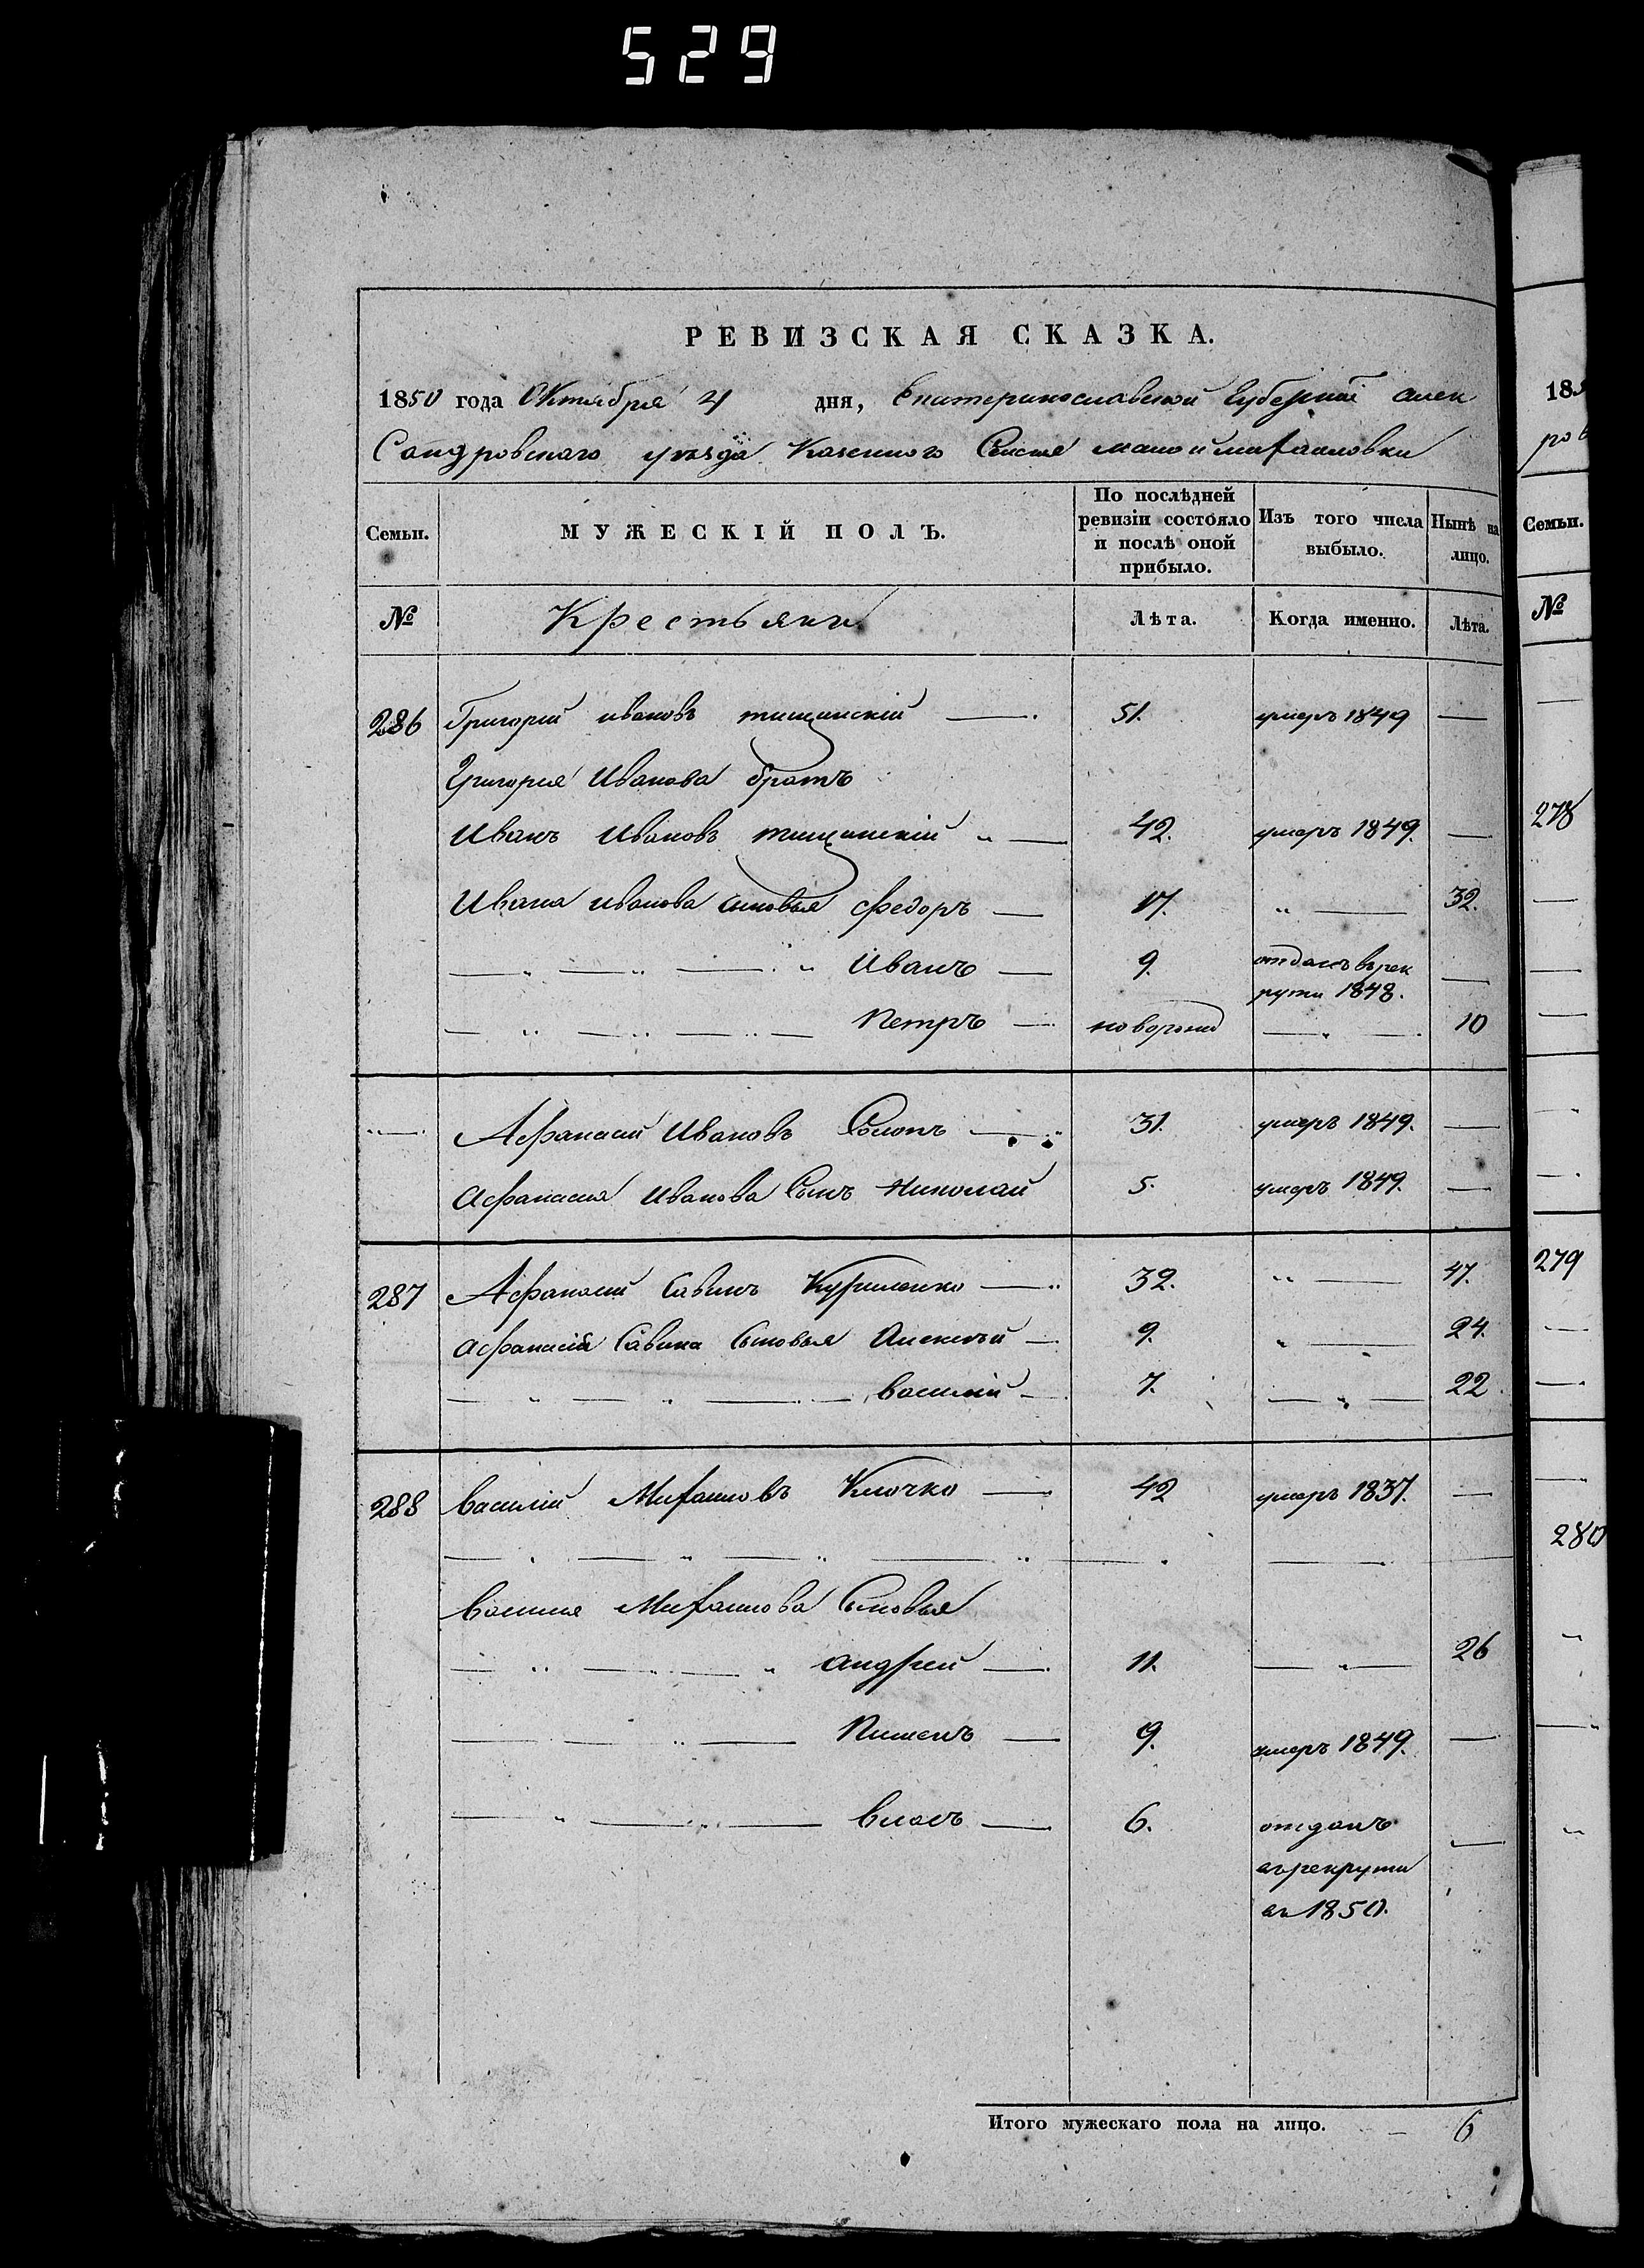 529
РЕВИЗСКАЯ СКАЗКА.
1850 года Октября 4 дня, Екатеринославской Губернии Алек
Сандровского уезда Казенного Селения мало михайловки
Семьи.
МУЖЕСКІЙ ПОЛЪ.
По послѣдней ревизіи состояло и послѣ оной прибыло.
Изъ того числа выбыло.
Нынѣ на лицо.
№ Крестьяни Лѣта. Когда именно. Лѣта.
286 Григорий ивановъ тищинскій — 51. умеръ 1849 —
Григория Иванова братъ
Иванъ Ивановъ тищинскій „ — 42. умеръ 1849. —
Ивана иванова сыновья Федоръ — 17. „ — 32.
— „ — „ — „ Иванъ — 9. отданъ въ рек
рути 1848. —
— „ — „ — „ — Петръ — новорожд — „ — 10
„ — Афанасий Ивановъ — „ 31. умеръ 1849. —
Афанасия Иванова Сынъ Николай 5. умеръ 1849. —
287 Афанасий Савинъ Куриленко — „ 32. „ — 47.
Афанасія Савина Сыновья Алексей — 9. „ — 24.
— „ — „ — „ — Василій — 7. — „ — 22.
288 Василій Михайловъ Клочко — 42 умеръ 1837. —
— „ — „ — „ — „ — „ —
Василия Михайлова Сыновья
— „ — „ — „ Андрей — 11. — „ — 26
— „ — „ — Пименъ — 9. умеръ 1849. —
— „ — „ — Власъ — 6. отданъ
въ рекрути
въ 1850. —
Итого мужескаго пола на лицо. — 6
185
ров
Семьи.
№
278
279
280